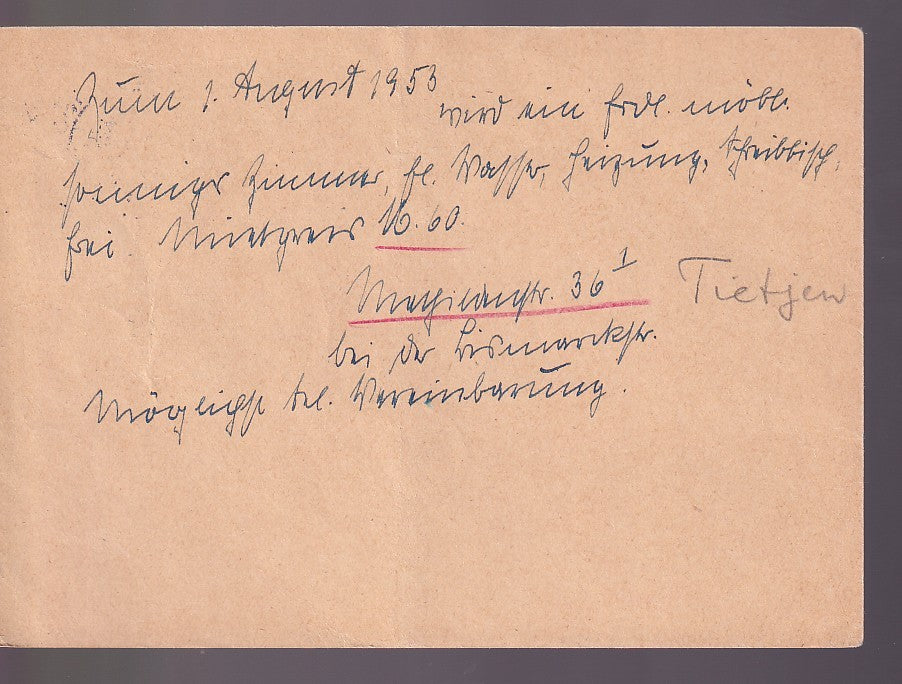 Zum 1. August 1953
wird ein frdl. möbl.
sonniges Zimmer, fl. Wasser, Heizung, Schreibtisch,
frei. Mietpreis 60.
Mathildenstr. 36 I
Tietjen
bei der Bismarckstr.
Möglichst tel. Vereinbarung.